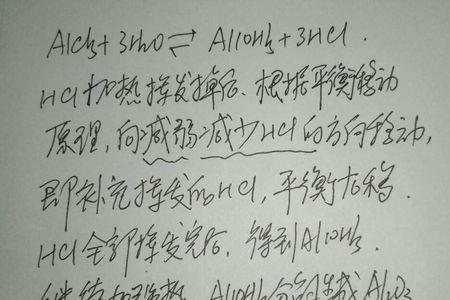 AlCl₃+3H₂O⇌Al(OH)₃+3HCl.
HCl加热挥发掉后、根据平衡移动
原理,向减弱减少HCl的方向移动,
即补充挥发的HCl,平衡右移.
HCl全部挥发完后,得到Al(OH)₃.
继续加强热,Al(OH)₃分解成Al₂O₃